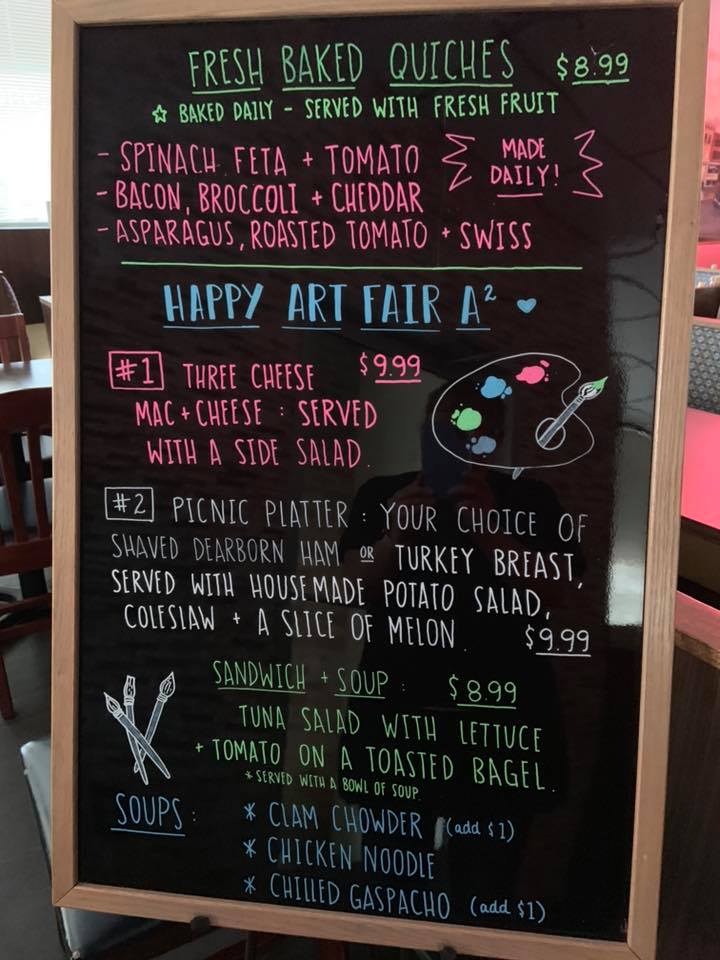 FRESH BAKED QUICHES $8.99
☆ BAKED DAILY - SERVED WITH FRESH FRUIT
- SPINACH FETA + TOMATO
MADE DAILY!
- BACON, BROCCOLI + CHEDDAR
- ASPARAGUS, ROASTED TOMATO + SWISS
HAPPY ART FAIR A² ♥
#1 THREE CHEESE $9.99
MAC + CHEESE : SERVED
WITH A SIDE SALAD.
#2 PICNIC PLATTER : YOUR CHOICE OF
SHAVED DEARBORN HAM OR TURKEY BREAST,
SERVED WITH HOUSEMADE POTATO SALAD,
COLESLAW + A SLICE OF MELON. $9.99
SANDWICH + SOUP : $8.99
TUNA SALAD WITH LETTUCE
+ TOMATO ON A TOASTED BAGEL.
* SERVED WITH A BOWL OF SOUP.
SOUPS : * CLAM CHOWDER (add $1)
* CHICKEN NOODLE
* CHILLED GASPACHO (add $1)